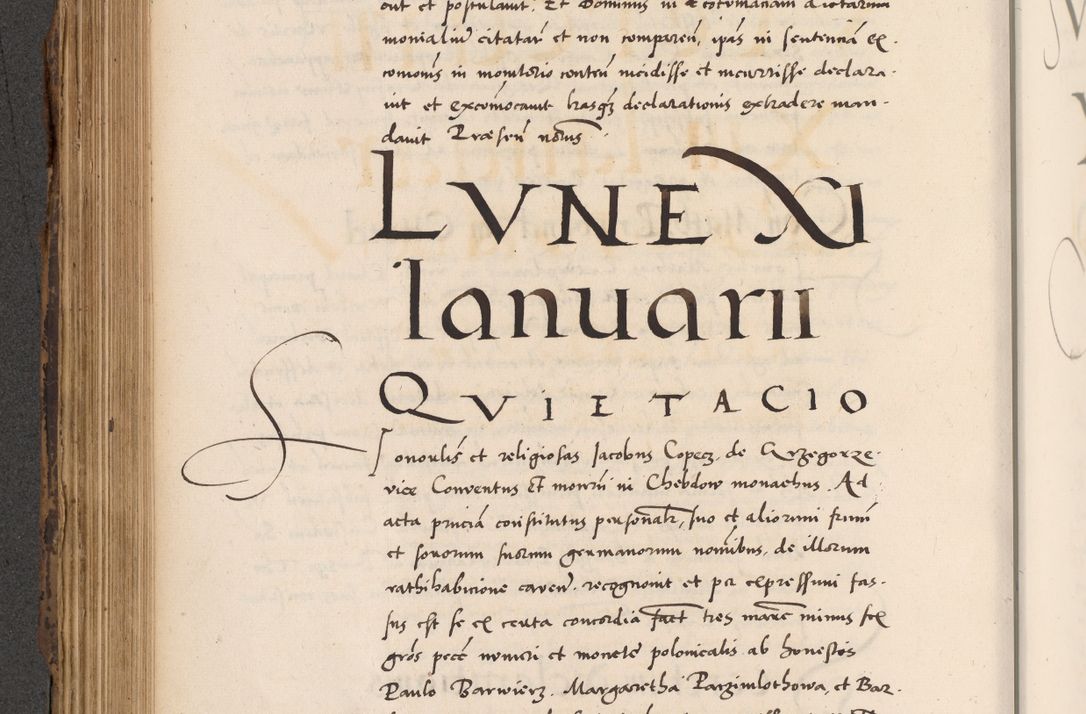 cut et postulavit, Et Dominus in
monialiu citatar et non comparen, ipas in sentencia ex-
comonis in monitorio conten incidisse et incurrisse declara-
vit et excomocavit hasqz declarationis extradere man-
davit Præsen notus
LVNE XI
Ianuarii
QVIETACIO
onorulis et religiosas Iacobus Copecz de Grzegorze-
vice Conventus et in Chebdow monachus. Ad
acta pncia constitutus personalr, suo et aliorum frum
et sororum suorum germanorum nominibus, de illorum
rathihabicione caven recognovit et per expressum fas-
sus est se ex certa concordia fact tres marc minus sex
gros pece numeri et monete polonicalis ab honestis
Paulo Barwierz Margaretha Pargimlothowa, et Bar-